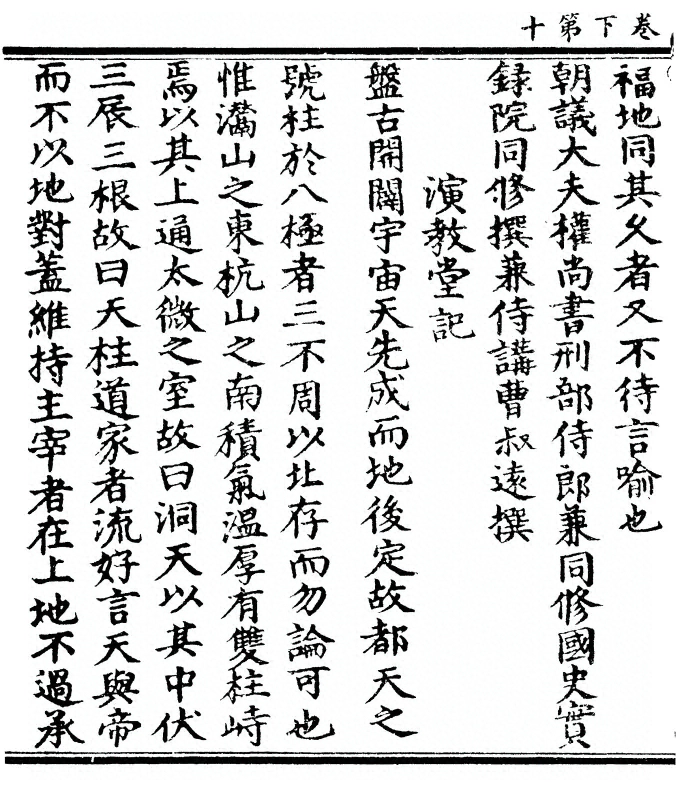 卷下第十
福地同其久者又不待言喻也
朝議大夫權尚書刑部侍郎兼同修國史實
録院同修撰兼侍講曹叔遠撰
演教堂記
盤古開闢宇宙天先成而地後定故都天之
號柱於八極者三不周以北存而勿論可也
惟灊山之東杭山之南積氣溫厚有雙柱峙
焉以其上通太微之室故曰洞天以其中伏
三辰三根故曰天柱道家者流好言天與帝
而不以地對蓋維持主宰者在上地不過承